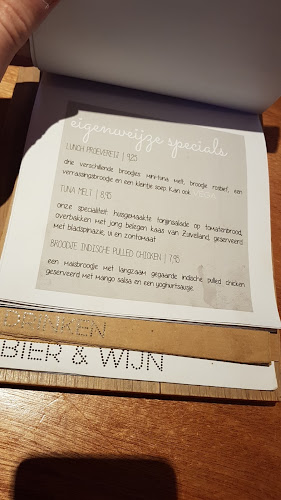 eigenweijze specials
LUNCH PROEVERIJ | 9,25
drie verschillende broodjes mini-tuna melt, broodje rosbief, een
verrassingsbroodje en een kleintje soep. Kan ook
TUNA MELT | 8,95
onze specialiteit huisgemaakte tonijnsalade op tomatenbrood,
overbakken met jong belegen kaas van Zuivelland, geserveerd
met bladspinazie, ui en zontomaat
BROODJE INDISCHE PULLED CHICKEN | 7,95
een maisbroodje met langzaam gegaarde indische pulled chicken
geserveerd met mango salsa en een yoghurtsausje
DRANKEN
BIER & WIJN